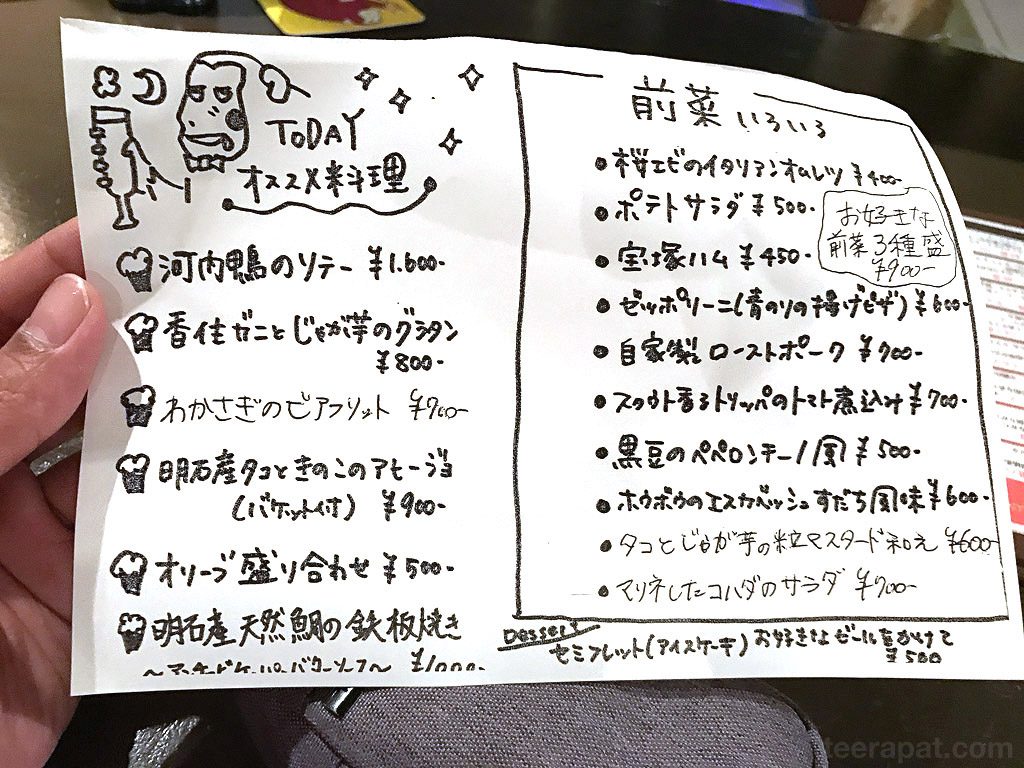 TODAY
オススメ料理
河内鴨のソテー ¥1.600-
香住ガニとじゃが芋のグラタン
¥800-
わかさぎのビアフリット ¥700-
明石産タコときのこのアヒージョ
(バケット付) ¥900-
オリーブ盛り合わせ ¥500-
明石産天然鯛の鉄板焼き
~アンチョビケッパーバターソース~
前菜いろいろ
桜エビのイタリアンオムレツ ¥400-
ポテトサラダ ¥500-
宝塚ハム ¥450-
お好きな
前菜3種盛
¥900-
ゼッポリーニ(青のりの揚げピザ) ¥600-
自家製ローストポーク ¥700-
スタウト香るトリッパのトマト煮込み ¥700-
黒豆のペペロンチーノ風 ¥500-
ホウボウのエスカベッシュすだち風味 ¥600-
タコとじゃが芋の粒マスタード和え ¥600-
マリネしたコハダのサラダ ¥700-
Dessert
セミフレット(アイスケーキ) お好きなビールをかけて
¥500
teerapat.com